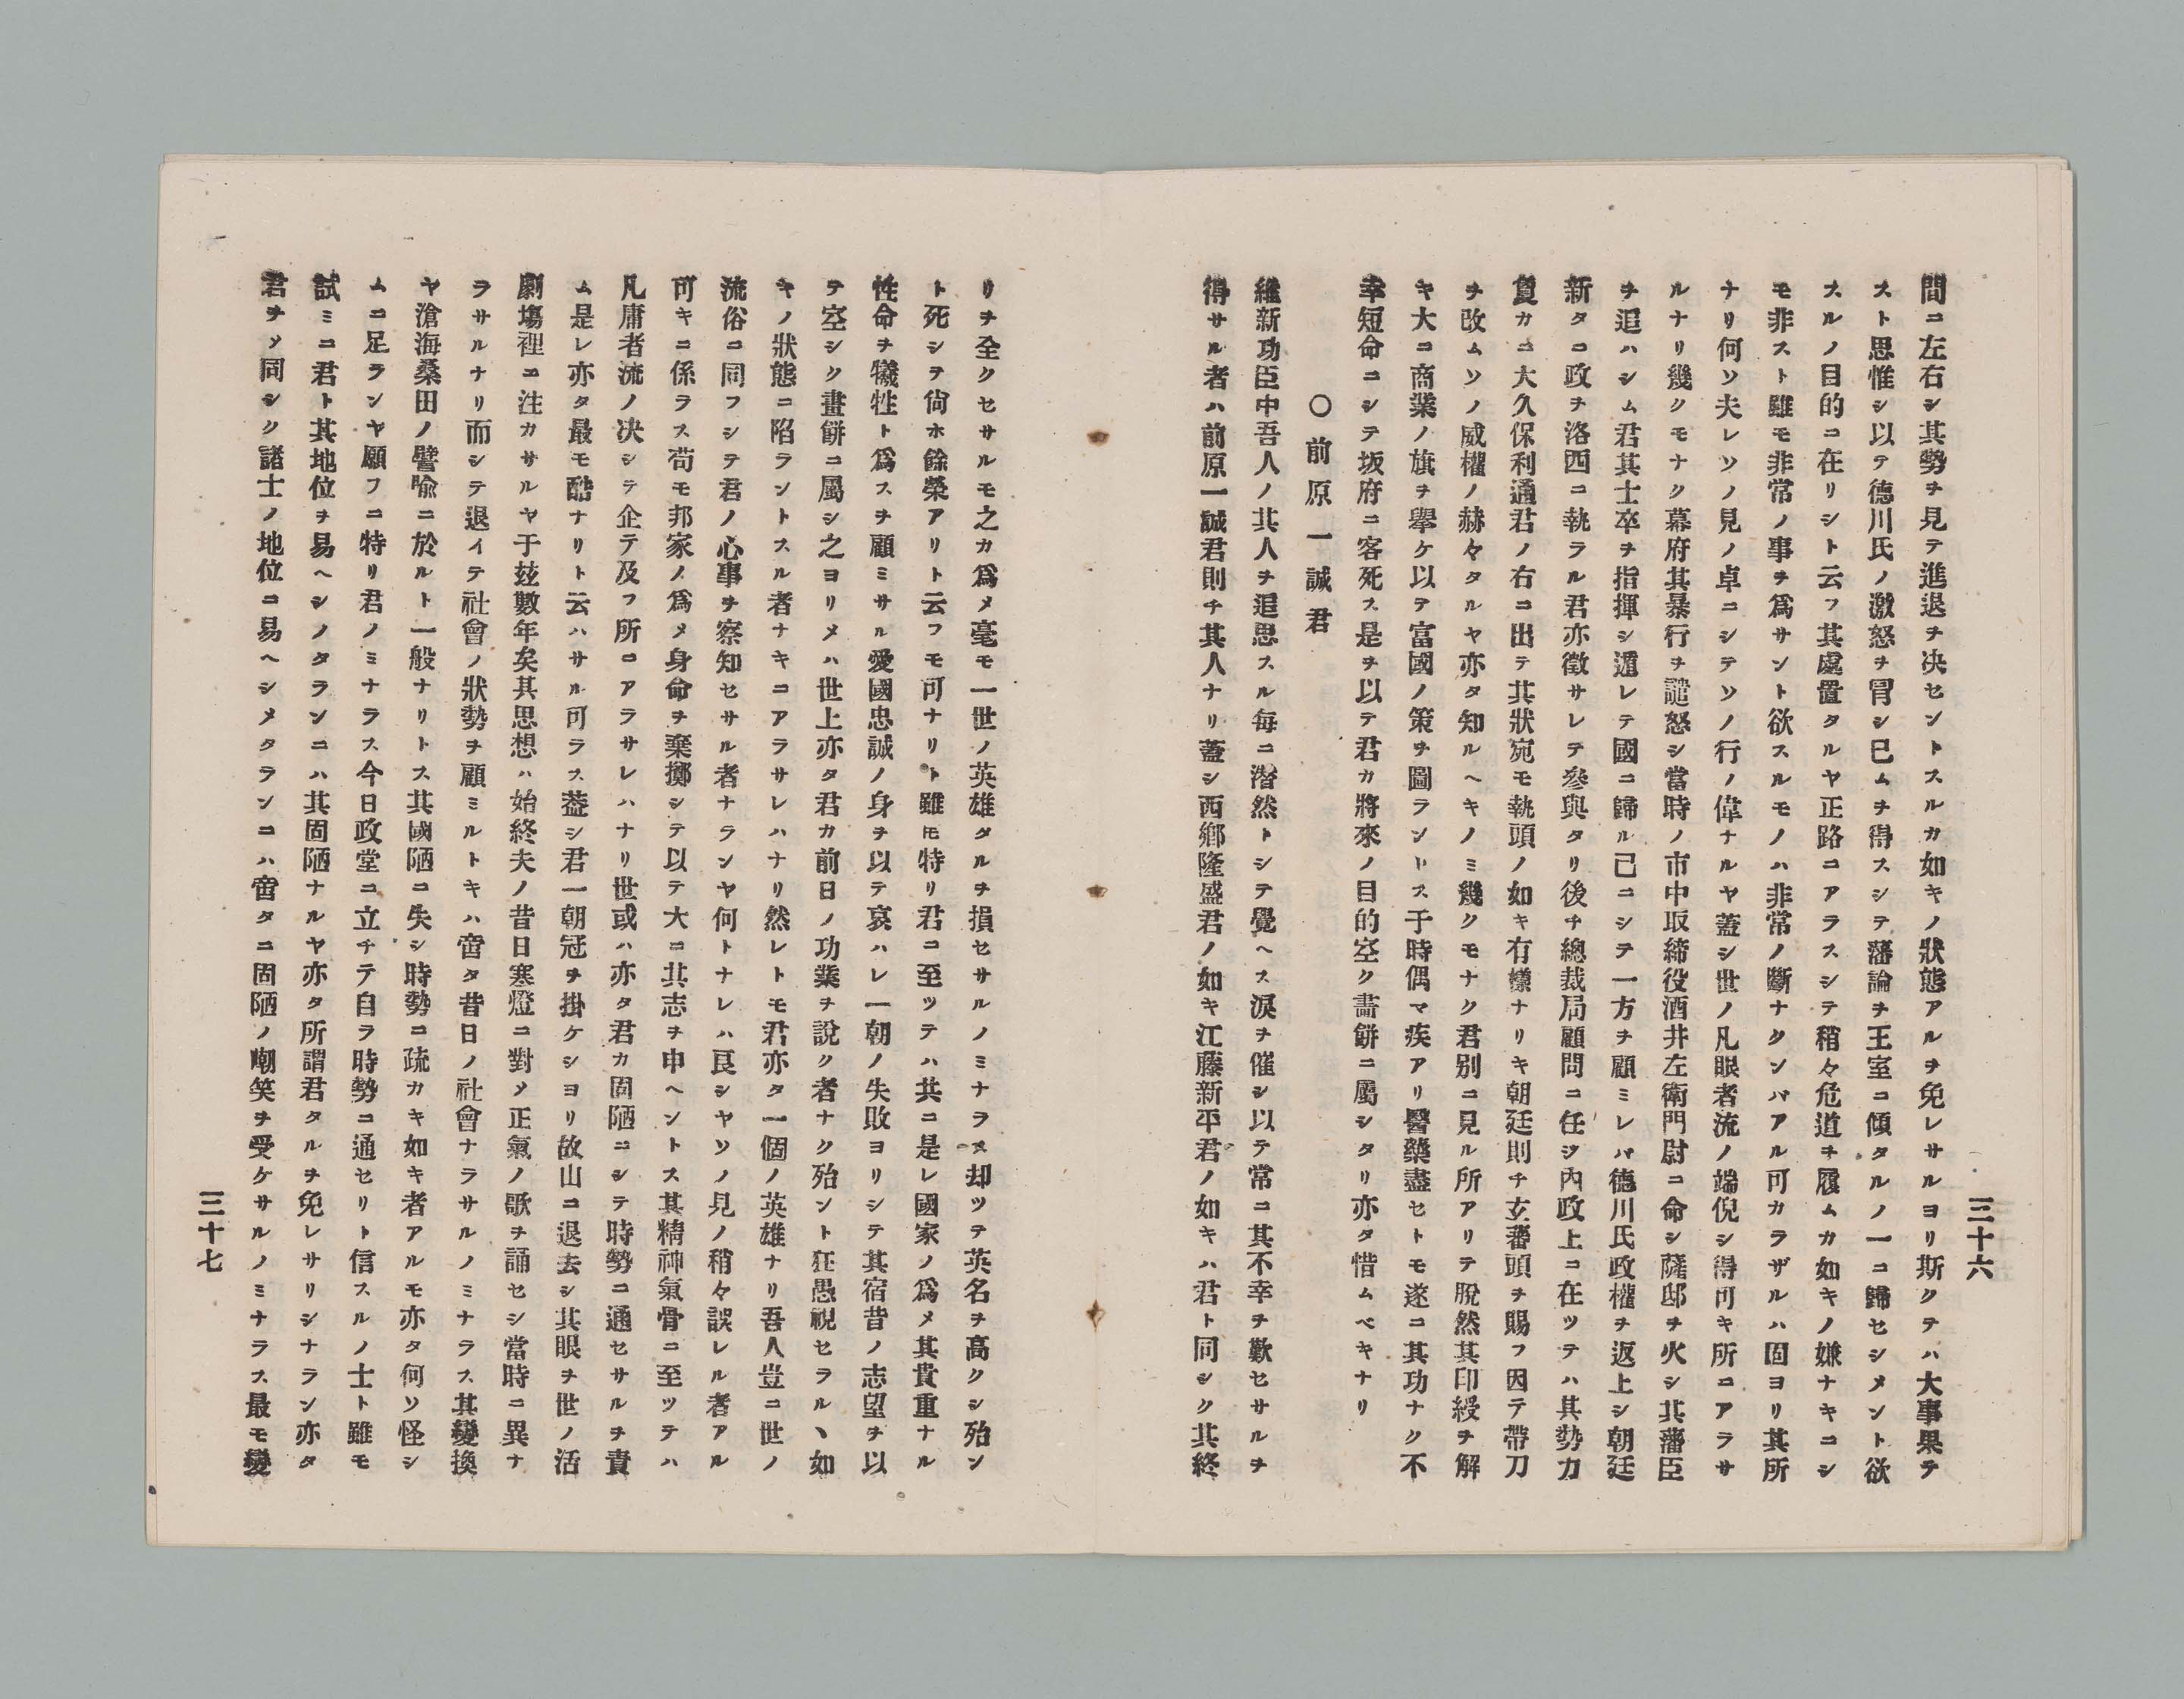 三十六
間ニ左右シ其勢ヲ見テ進退ヲ决セントスルカ如キノ狀態アルヲ免レサルヨリ斯クテハ大事果テ
スト思惟シ以テ德川氏ノ激怒ヲ冐シ已ムヲ得スシテ藩論ヲ王室ニ傾タルノ一ニ歸セシメント欲
スルノ目的ニ在リシト云フ其處置タルヤ正路ニアラスシテ稍々危道ヲ履ムカ如キノ嫌ナキニシ
モ非スト雖モ非常ノ事ヲ爲サント欲スルモノハ非常ノ斷ナクンバアル可カラザルハ固ヨリ其所
ナリ何ソ夫レソノ見ノ卓ニシテソノ行ノ偉ナルヤ蓋シ世ノ凡眼者流ノ端倪シ得可キ所ニアラサ
ルナリ幾クモナク幕府其暴行ヲ譴怒シ當時ノ市中取締役酒井左衛門尉ニ命シ薩邸ヲ火シ其藩臣
ヲ追ハシム君其士卒ヲ指揮シ遁レテ國ニ歸ル已ニシテ一方ヲ顧ミレバ德川氏政權ヲ返上シ朝廷
新タニ政ヲ洛西ニ執ラル君亦徵サレテ參與タリ後チ總裁局顧問ニ任ジ內政上ニ在ツテハ其勢力
賁カニ大久保利通君ノ右ニ出テ其狀宛モ執頭ノ如キ有樣ナリキ朝廷則チ玄蕃頭ヲ賜フ因テ帶刀
ヲ改ムソノ威權ノ赫々タルヤ亦タ知ルヘキノミ幾クモナク君別ニ見ル所アリテ脫然其印綬ヲ解
キ大ニ商業ノ旗ヲ擧ケ以テ富國ノ策ヲ圖ラントス于時偶マ疾アリ醫藥盡セトモ遂ニ其功ナク不
幸短命ニシテ坂府ニ客死ス是ヲ以テ君カ將來ノ目的空ク畵餅ニ屬シタリ亦タ惜ムベキナリ
〇前原一誠君
維新功臣中吾人ノ其人ヲ追思スル每ニ潸然トシテ覺ヘス淚ヲ催シ以テ常ニ其不幸ヲ歎セサルヲ
得サル者ハ前原一誠君則チ其人ナリ蓋シ西鄕隆盛君ノ如キ江藤新平君ノ如キハ君ト同シク其終
リヲ全クセサルモ之カ爲メ毫モ一世ノ英雄タルヲ損セサルノミナラス却ツテ英名ヲ高クシ殆ン
ト死シヲ尙ホ餘榮アリト云フモ可ナリト雖モ特リ君ニ至ツテハ共ニ是レ國家ノ爲メ其貴重ナル
性命ヲ犧牲ト爲スヲ顧ミサル愛國忠誠ノ身ヲ以テ哀ハレ一朝ノ失敗ヨリシテ其宿昔ノ志望ヲ以
テ空シク畫餅ニ屬シ之ヨリメハ世上亦タ君カ前日ノ功業ヲ說ク者ナク殆ント狂愚視セラルヽ如
キノ狀態ニ陷ラントスル者ナキニアラサレハナリ然レトモ君亦タ一個ノ英雄ナリ吾人豈ニ世ノ
流俗ニ同フシテ君ノ心事ヲ察知セサル者ナランヤ何トナレハ良シヤソノ見ノ稍々誤レル者アル
可キニ係ラス苟モ邦家ノ爲メ身命ヲ棄擲シテ以テ大ニ其志ヲ申ヘントス其精神氣骨ニ至ツテハ
凡庸者流ノ决シテ企テ及フ所ニアラサレハナリ世或ハ亦タ君カ固陋ニシテ時勢ニ通セサルヲ責
ム是レ亦タ最モ酷ナリト云ハサル可ラス葢シ君一朝冠ヲ掛ケシヨリ故山ニ退去シ其眼ヲ世ノ活
劇塲裡ニ注カサルヤ于玆數年矣其思想ハ始終夫ノ昔日寒燈ニ對メ正氣ノ歌ヲ誦セシ當時ニ異ナ
ラサルナリ而シテ退イテ社會ノ狀勢ヲ顧ミルトキハ啻タ昔日ノ社會ナラサルノミナラス其變換
ヤ滄海桑田ノ譬喩ニ於ルト一般ナリトス其國陋ニ失シ時勢ニ疏カキ如キ者アルモ亦タ何ソ怪シ
ムニ足ランヤ願フニ特リ君ノミナラス今日政堂ニ立チテ自ラ時勢ニ通セリト信スルノ士ト雖モ
試ミニ君ト其地位ヲ易ヘシノタランニハ其固陋ナルヤ亦タ所謂君タルヲ免レサリシナラン亦タ
君ヲソ同シク諸士ノ地位ニ易ヘシメタランニハ啻タニ固陋ノ嘲笑ヲ受ケサルノミナラス最モ變
三十七